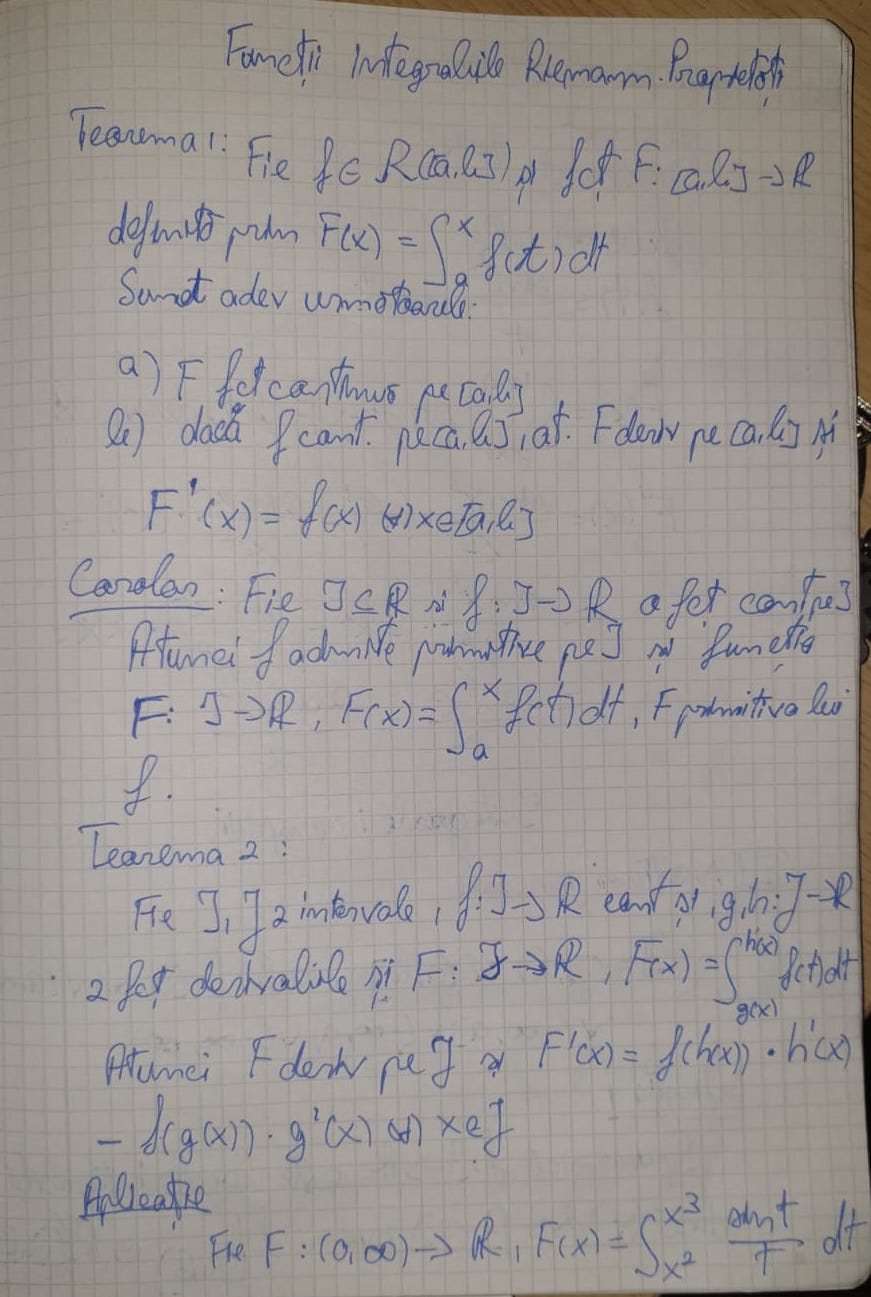 Funcții Integrabile Riemann. Proprietăți
Teorema 1: Fie f ∈ R([a,b]) și fcț F: [a,b] → R
definită prin F(x) = ∫_a^x f(t) dt
Sunt adev următoarele:
a) F fct continuă pe [a,b]
b) dacă f cont. pe [a,b], at. F deriv pe [a,b] și
F'(x) = f(x) (∀) x∈[a,b]
Corolar: Fie I ⊆ R și f: I → R o fcț cont pe I
Atunci f admite primitive pe I și funcția
F: I → R, F(x) = ∫_a^x f(t) dt, F primitiva lui
f.
Teorema 2:
Fie I, J 2 intervale, f: I → R cont și, g, h: J → R
2 fcț derivabile și F: J → R, F(x) = ∫_{g(x)}^{h(x)} f(t) dt
Atunci F deriv pe J și F'(x) = f(h(x)) · h'(x)
- f(g(x)) · g'(x) (∀) x∈J
Aplicație
Fie F: (0,∞) → R, F(x) = ∫_{x²}^{x³} sin t / t dt